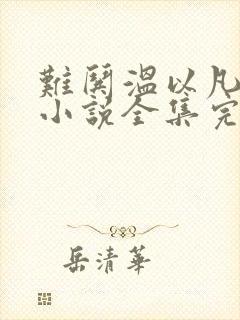 難鬨溫以凡
小說全集完
岳清華